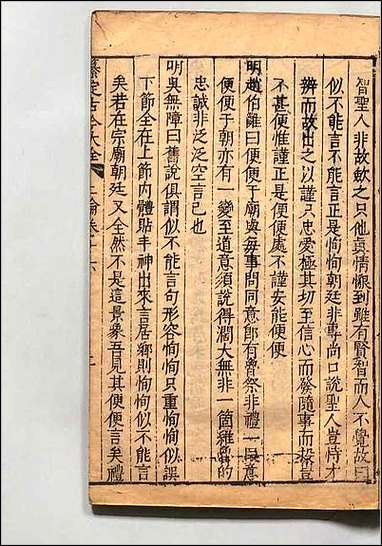 智聖人非故歛之只他真情懷到雖有賢智而人不覺故曰
似不能言不能言正是恂恂朝廷非專尚口說聖人豈恃才
辨而故出之以謹只忠愛極其切至信心而發隨事而投豈
不甚便惟謹正是便便處不謹安能便便
明趙伯雝曰便便于廟與每事問同意郎有魯祭非禮一段意
便便于朝亦有一變至道意須說得濶大無非一箇雍雍的
忠誠非泛泛空言已也
明吳無障曰舊說俱謂似不能言句形容恂恂只重恂恂似誤
下節全在上節內體貼丰神出來言居鄉則恂恂似不能言
矣若在宗廟朝廷又全然不是這景象吾見其便便言矣禮
纂定古今大全 上論卷十六